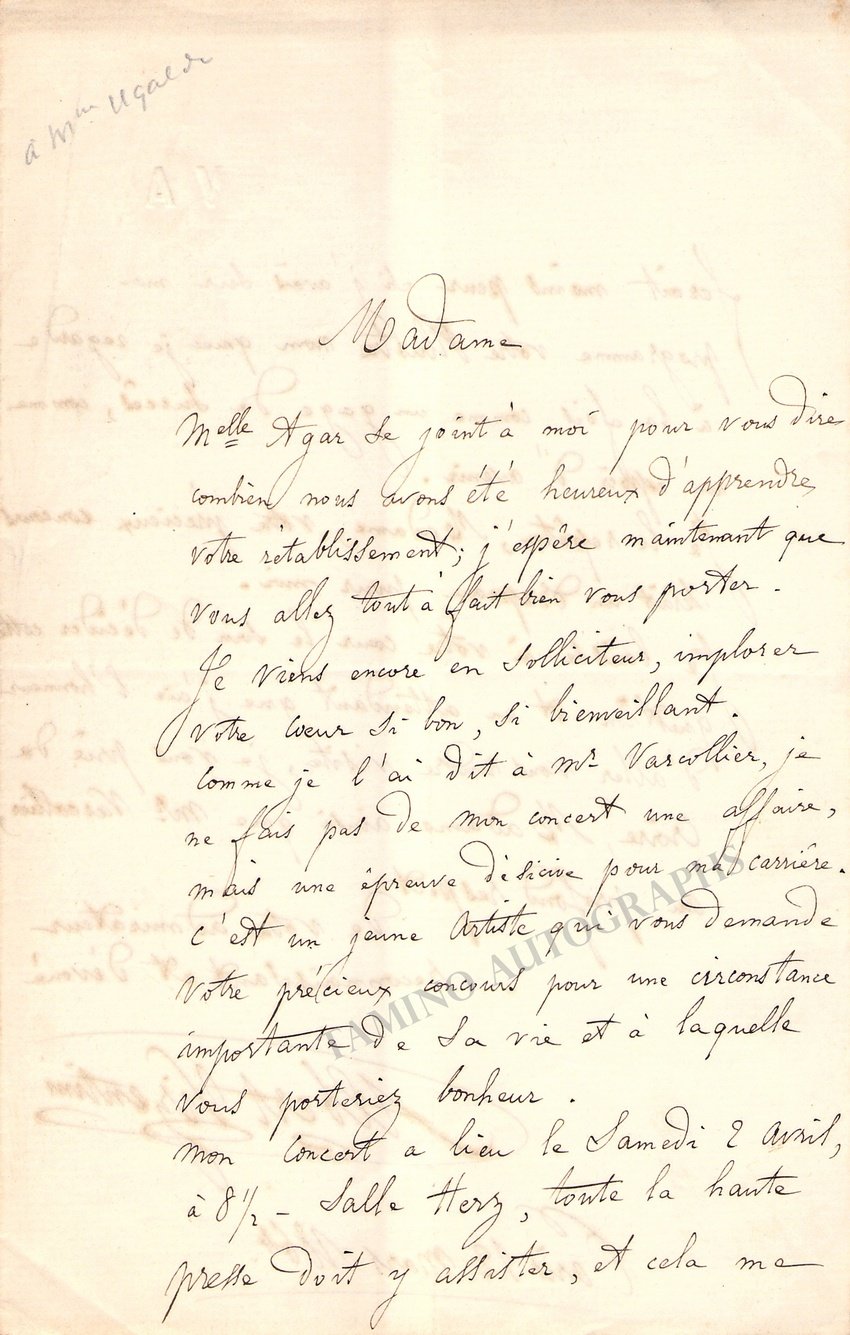 à Mme Ugalde
Madame
Melle Agar se joint à moi pour vous dire
combien nous avons été heureux d'apprendre
votre rétablissement; j'espère maintenant que
vous allez tout à fait bien vous porter.
Je viens encore en solliciteur, implorer
votre cœur si bon, si bienveillant.
comme je l'ai dit à Mr Varcollier, je
ne fais pas de mon concert une affaire,
mais une épreuve désicive pour ma carrière.
c'est un jeune Artiste qui vous demande
votre précieux concours pour une circonstance
importante de sa vie et à laquelle
vous porteriez bonheur.
mon concert a lieu le Samedi 2 Avril,
à 8 1/2 - Salle Herz, toute la haute
presse doit y assister, et cela me
TAMINO AUTOGRAPHS